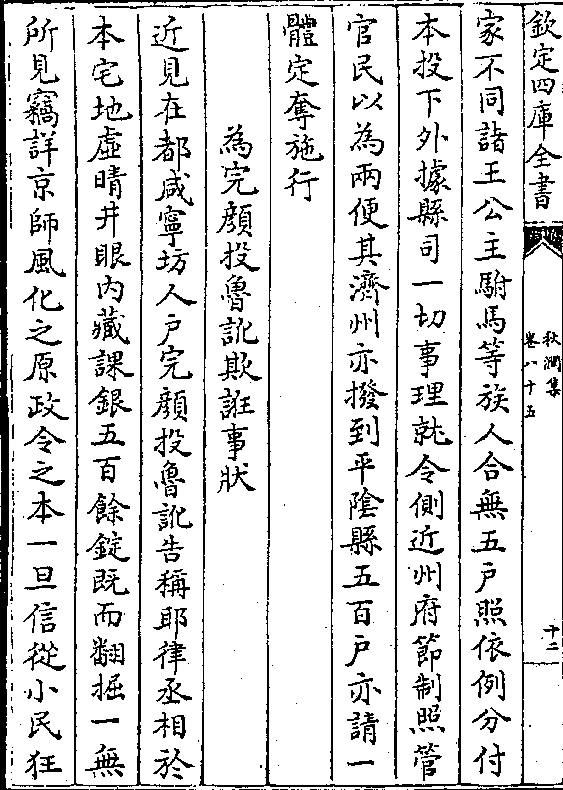 欽定四庫全書
秋澗集
卷八十五
十二
家不同諸王公主駙馬等族人合無五戶照依例分付
本投下外據縣司一切事理就令側近州府節制照管
官民以為兩便其濟州亦撥到平陰縣五百戶亦請一
體定奪施行
為完顔投魯訛欺誑事狀
近見在都咸寧坊人戶完顔投魯訛告稱耶律丞相於
本宅地虛晴井眼內藏課銀五百餘錠既而翻掘一無
所見竊詳京師風化之原政令之本一旦信從小民狂